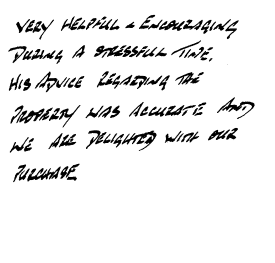 VERY HELPFUL & ENCOURAGING
DURING A STRESSFUL TIME.
HIS ADVICE REGARDING THE
PROPERTY WAS ACCURATE AND
WE ARE DELIGHTED WITH OUR
PURCHASE